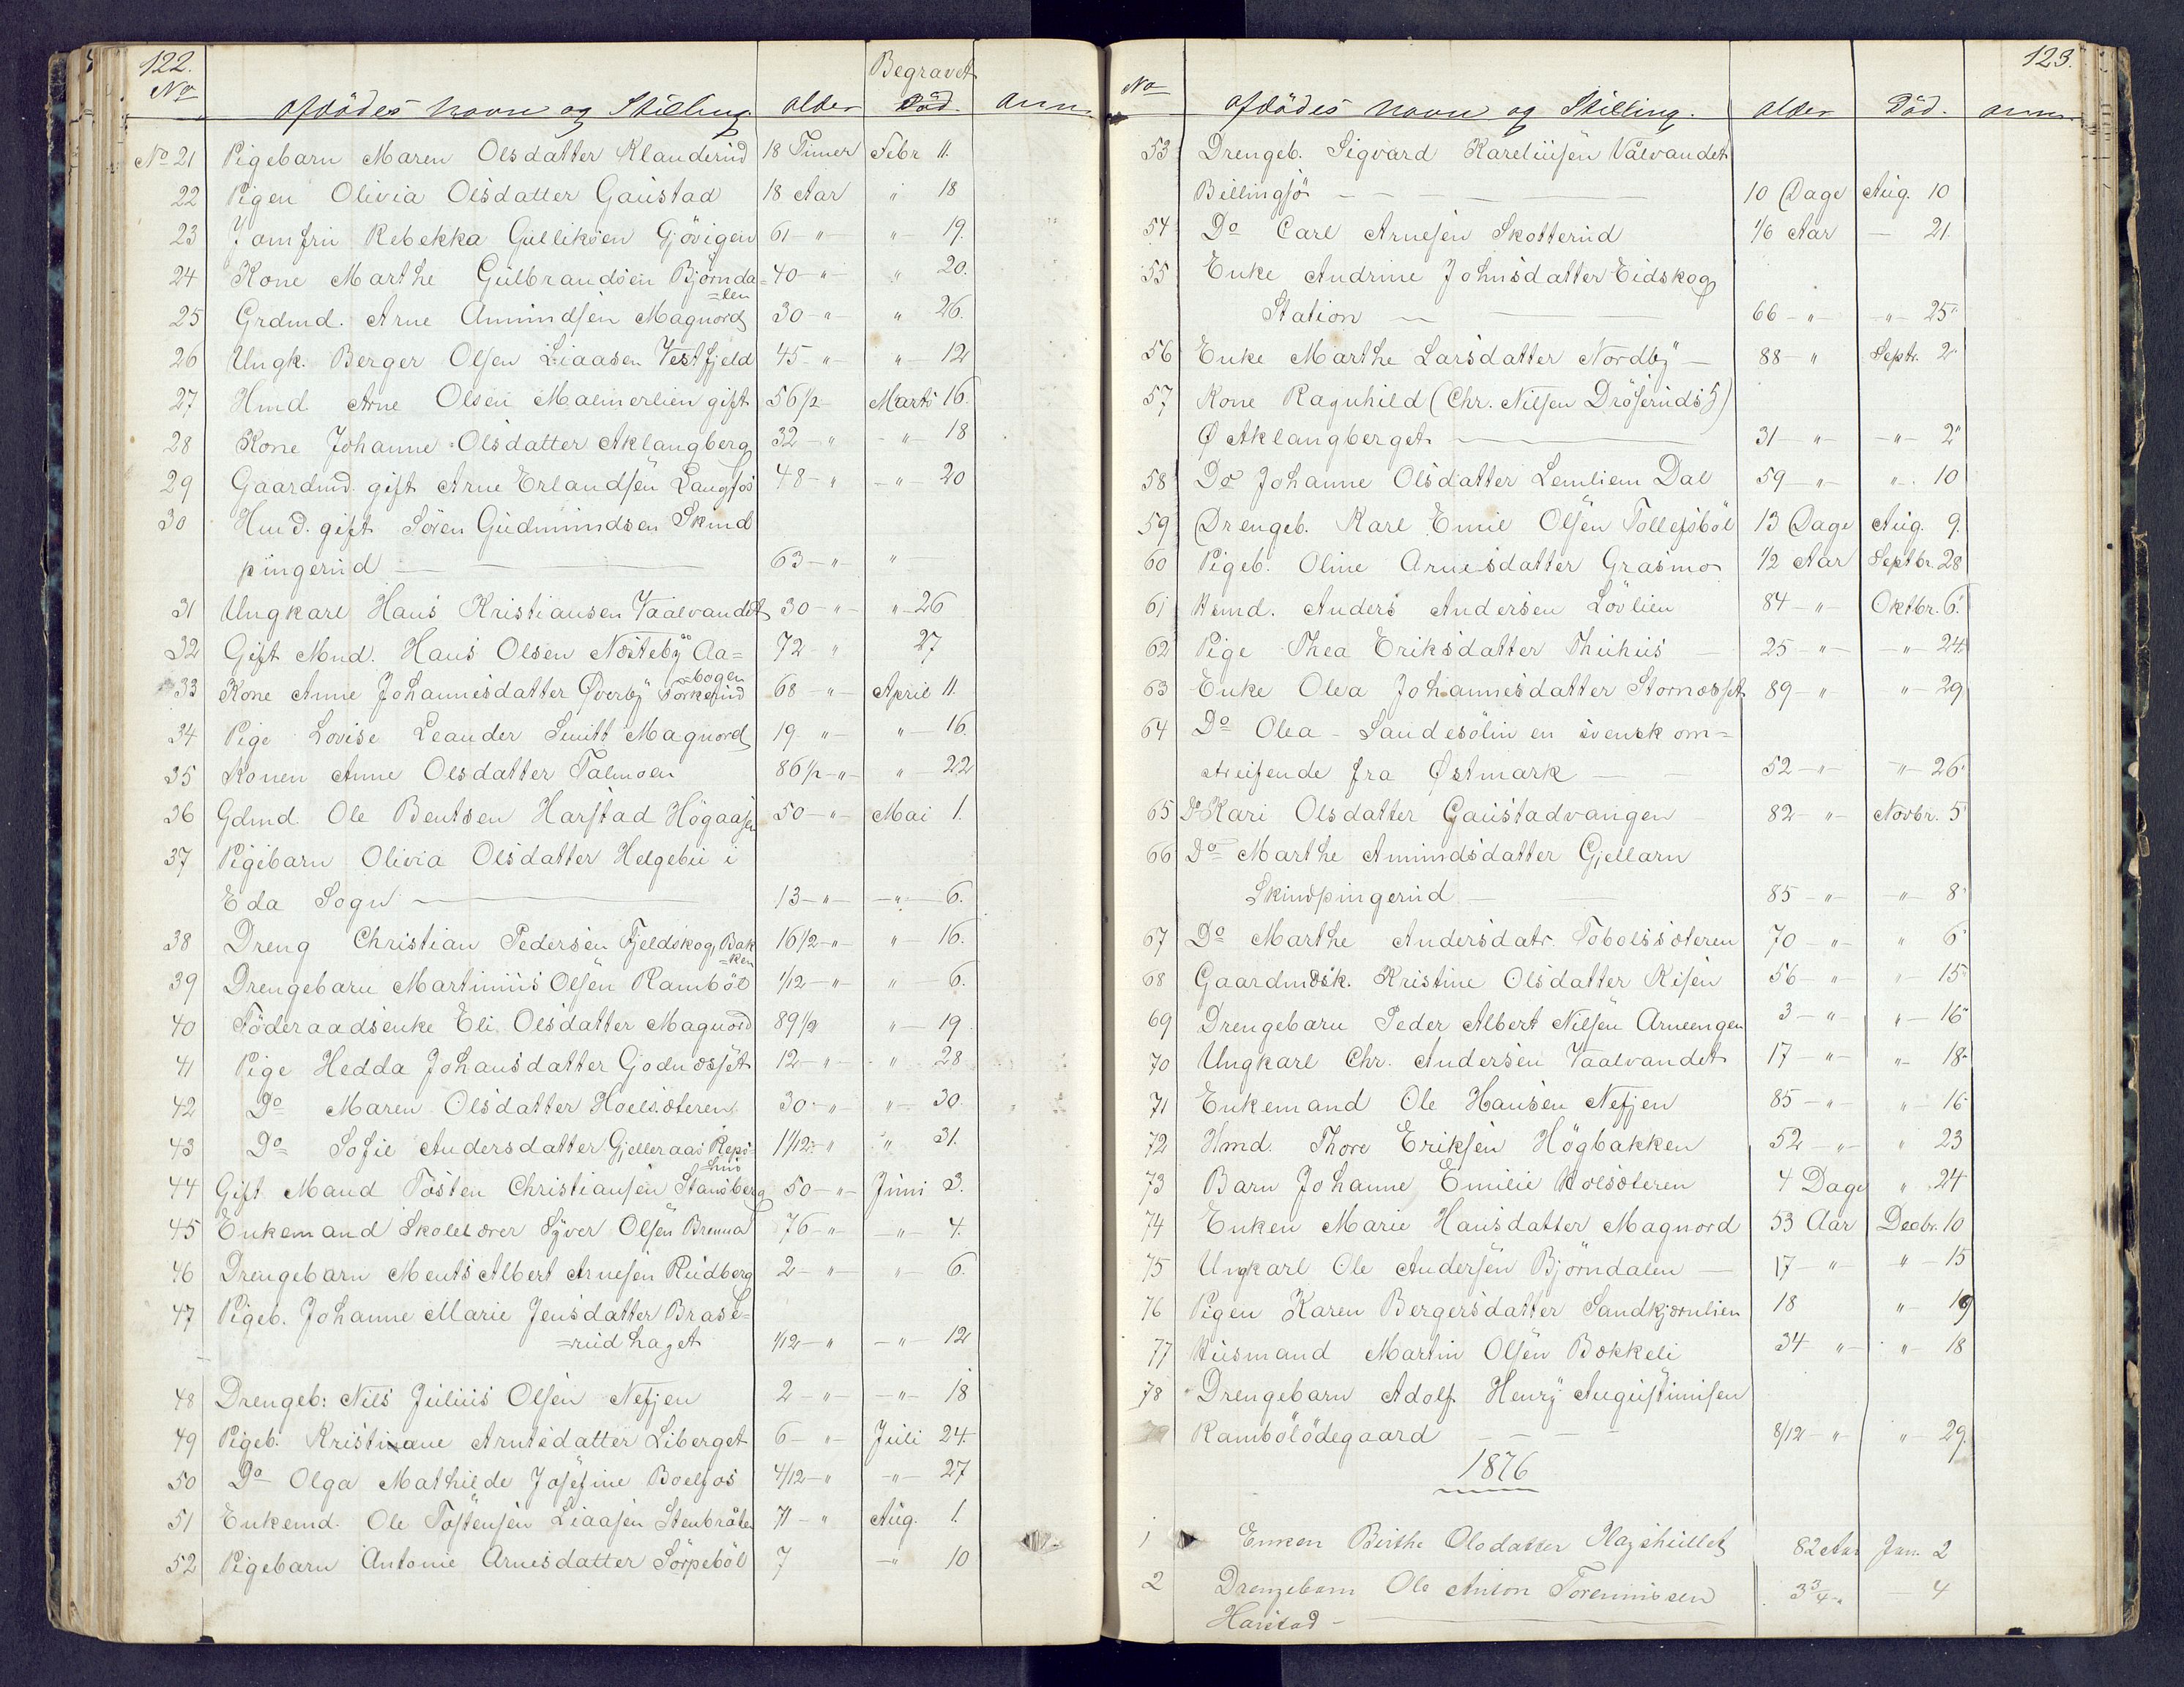 122.
Begravet
No Afdödes Navn og Stilling. Alder Död. Anm.
No 21 Pigebarn Maren Olsdatter Klanderud 18 Timer Febr 11.
22 Pigen Olivia Olsdatter Gaustad 18 Aar " 18
23 Jomfru Rebekka Gulliksen Gjövigen 61 - " - " - 19.
24 Kone Marthe Gulbrandsen Björnda= 40 - " - " 20.
=len
25 Grdmd. Arne Amundsen Magnord 30 - " " 26.
26 Ungk. Berger Olsen Liaasen Vestfjeld 45 - " - " - 12
27 Hmd. Arne Olsen Malmerlien gift 56 1/2 Marts 16.
28 Kone Johanne Olsdatter Aklangberg 32 - " - " - 18
29 Gaardmd. gift Arne Erlandsen Langfos 48 - " - " - 20
30 Hmd. gift Sören Gudmundsen Skind
pingerud 63 - " - "
31 Ungkarl Hans Kristiansen Vaalvandet 30 - " - " - 26
32 Gift Mnd. Hans Olsen Næsteby Aa= 72 - " 27
=bogen
33 Kone Anne Johannesdatter Överby Torkerud 68 - " - April 11.
34 Pige Lovise Leander Smitt Magnord 19 - " - " - 16.
35 Konen Anne Olsdatter Talmoen 86 1/2 - " - " - 22
36 Gdmd. Ole Bentsen Harstad Högaasen 50 - " - Mai 1.
37 Pigebarn Olivia Olsdatter Helgebu i
Eda Sogn 13 - " - - " - 6.
38 Dreng Christian Pedersen Fjeldskog, Bak 16 1/2 - " - " - 16.
=ken
39 Drengebarn Martinius Olsen Ramböl 1/12 - " - " - 6.
40 Föderaadsenke Eli Olsdatter Magnord 89 1/2 " - 19
41 Pige Hedda Johansdatter Godnæsset 12 - " - " 28
42 Do Maren Olsdatter Hoelsæteren 30 - " - " - 30.
43 Do Sofie Andersdatter Gjelleraas Reps= 1 1/12 - " " 31.
=hus
44 Gift Mand Tosten Christiansen Stansberg 50 - " - Juni 3.
45 Enkemand Skolelærer Syver Olsen Brenna 76 - " - - " - 4.
46 Drengebarn Ments Albert Arnesen Rudberg 2 - " - " - 6.
47 Pigeb. Johanne Marie Jensdatter Brase=
=rudhaget 1/12 - " - " - 12
48 Drengeb: Nils Julius Olsen Nefjen 2 - " - - " - 18
49 Pigeb. Kristiane Arntsdatter Liberget 6 - " - Juli 24.
50 Do Olga Mathilde Josefine Boelfos 4/12 - " - " - 27
51 Enkemd. Ole Tostensen Liaasen Stenbråten 71 - " Aug. 1.
52 Pigebarn Antonie Arnesdatter Sörpeböl 7 - " 10
123.
No Afdödes Navn og Stilling. Alder Död. Anm.
53 Drengeb. Sigvard Kareliusen Vålvandet
Billingsjö 10 Dage Aug. 10
54 Do Carl Arnesen Skotterud 1/6 Aar - 21.
55 Enke Andrine Johnsdatter Eidskog
Station 66 - " - " - 25
56 Enke Marthe Larsdatter Nordby 88 - " Septr. 2
57 Kone Ragnhild (Chr. Nilsen Dröseruds)
Ø Aklangberget 31 - " - " - 2
58 Do Johanne Olsdatter Lemliem Dal 59 - " - " 10
59 Drengeb. Karl Emil Olsen Tollefsböl 13 Dage Aug. 9.
60 Pigeb. Oline Arnesdatter Grasmo 1/2 Aar Septbr. 28
61 Hsmd. Anders Andersen Lövlien 84 - " Oktbr. 6.
62 Pige Thea Eriksdatter Thuhus 25 - " - - " - 24
63 Enke Olea Johannesdatter Stornæsset 89 - " " - 29
64 Do Olea Sandesölin en svensk om=
streifende fra Østmark 52 - " - " - 26
65 Do Kari Olsdatter Gaustadvangen 82 - " - Novbr. 5
66 Do Marthe Amundsdatter Gjellarn
Skindpingerud 85 - " - - " - 8
67 Do Marthe Andersdatr. Tobolssæteren 70 - " - " 6
68 Gaardmdsk. Kristine Olsdatter Risen 56 - " " 15
69 Drengebarn Peder Albert Nilsen Arneengen 3 - " " - 16
70 Ungkarl Chr. Andersen Vaalvandet 17 - " " - 18
71 Enkemand Ole Hansen Nefjen 85 - " " - 16
72 Hmd. Thore Eriksen Högbakken 52 - " - " 23
73 Barn Johanne Emilie Holsæteren 4 Dage " 24
74 Enken Marie Hansdatter Magnord 53 Aar Decbr. 10
75 Ungkarl Ole Andersen Björndalen 17 - " " - 15
76 Pigen Karen Bergersdatter Sandkjærnlien 18 " - 19
77 Husmand Martin Olsen Bækkeli 34 - " - " - 18
78 Drengebarn Adolf Henry Augustinisen
Rambölödegaard 8/12 - " " - 29.
1876
1 Enken Birthe Olsdatter 82 Aar Jan. 2
2 Drengebarn Ole Anton Torennissen 3 3/4 - " 4
Harstad